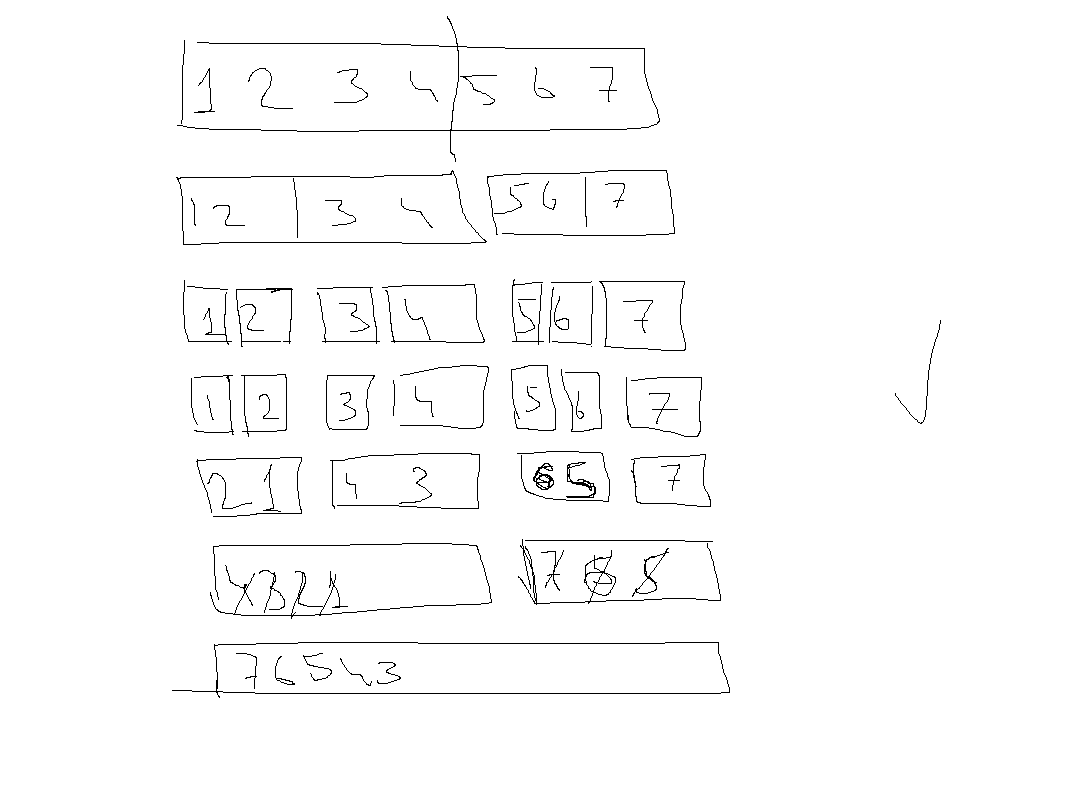 1 2 3 4 5 6 7
12 3 4 56 7
1 2 3 4 5 6 7
1 2 3 4 5 6 7
21 4 3 65 7
4321 765
76543